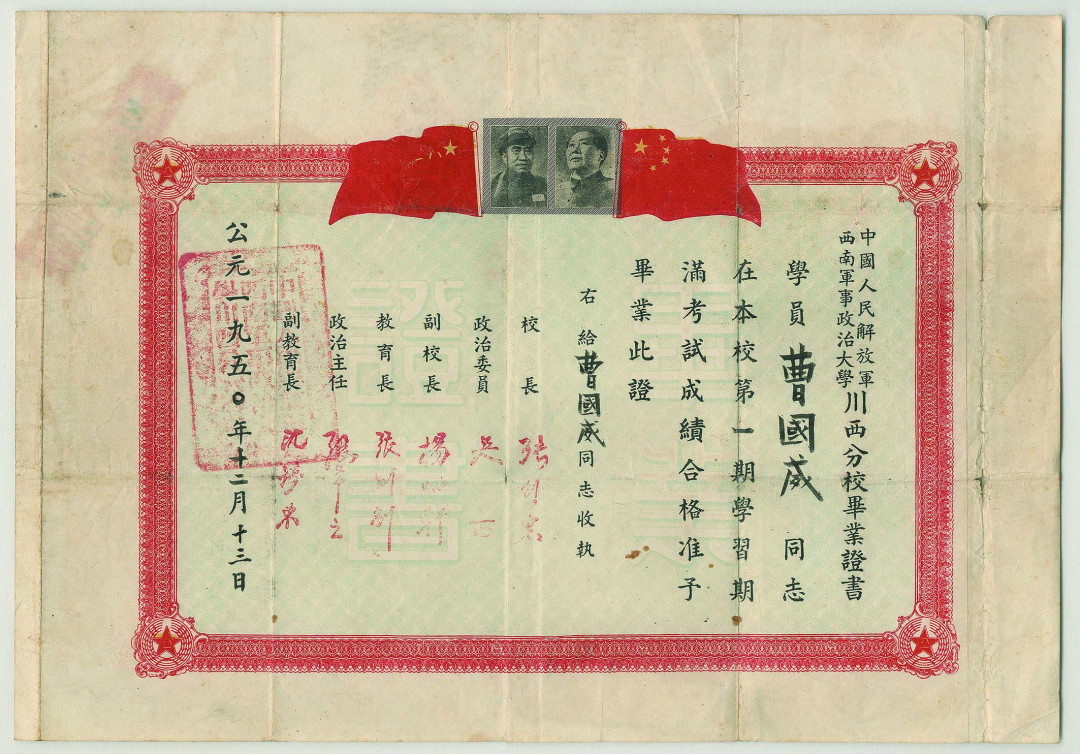 中國人民解放軍
西南軍事政治大學
川西分校畢業證書
學員曹國威同志
在本校第一期學習期
滿考試成績合格准予
畢業此證
右給曹國威同志收執
校長
政治委員
副校長
教育長 張
政治主任
副教育長 沈
公元一九五〇年十二月十三日
畢業
證書